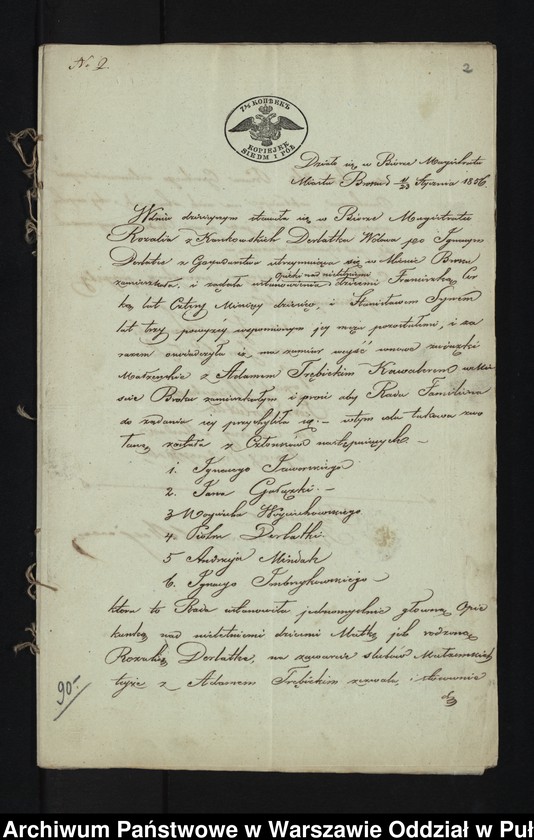 N. 2.
2
7½ КОПѢЕКЪ
KOPIEJEK
SIEDM I PÓŁ
Działo się w Biórze Magistratu
Miasta Broku d. 11/23 Stycznia 1856.
W dniu dzisieyszym stawiła się w Biórze Magistratu
Rozalia z Kankowskich Derlatka Wdowa po Ignacym
Derlatce z Gospodarstwa utrzymuiąca się w Mieście Broku
zamieszkała, i żądała ustanowienia dziećmi Franciszką Cór
Opieki nad nieletniemi
ką lat Cztery Miesięcy dziewięć, i Stanisławem Synem
lat trzy powyżey wspomnionym jey męża pozostałemi, i za
razem oświadczyła iż ma zamiar wejść w nowe związki
Małżeńskie z Adamem Trębickim Kawalerem w Mie
ście Broku zamieszkałym i prosi aby Rada Familijna
do żądania jey przychyliła się – w tym celu takowa zwo
łaną została z Członków następuiących –
1. Ignacego Jaworskiego
2. Jana Gałązki. –
3 Woyciecha Woyciechowskiego
4. Piotra Derlatki.
5 Andrzeja Mindak
6. Ignacego Imbrykowskiego
która to Rada ustanowiła jednomyślnie główną Opie
kunkę nad nieletniemi dziećmi Matkę ich rodzoną
Rozalię Derlatkę, na zawarcie ślubów Małżeńskich
teyże z Adamem Trębickim zezwala, i stosownie
90-
Archiwum Państwowe w Warszawie Oddział w Puł